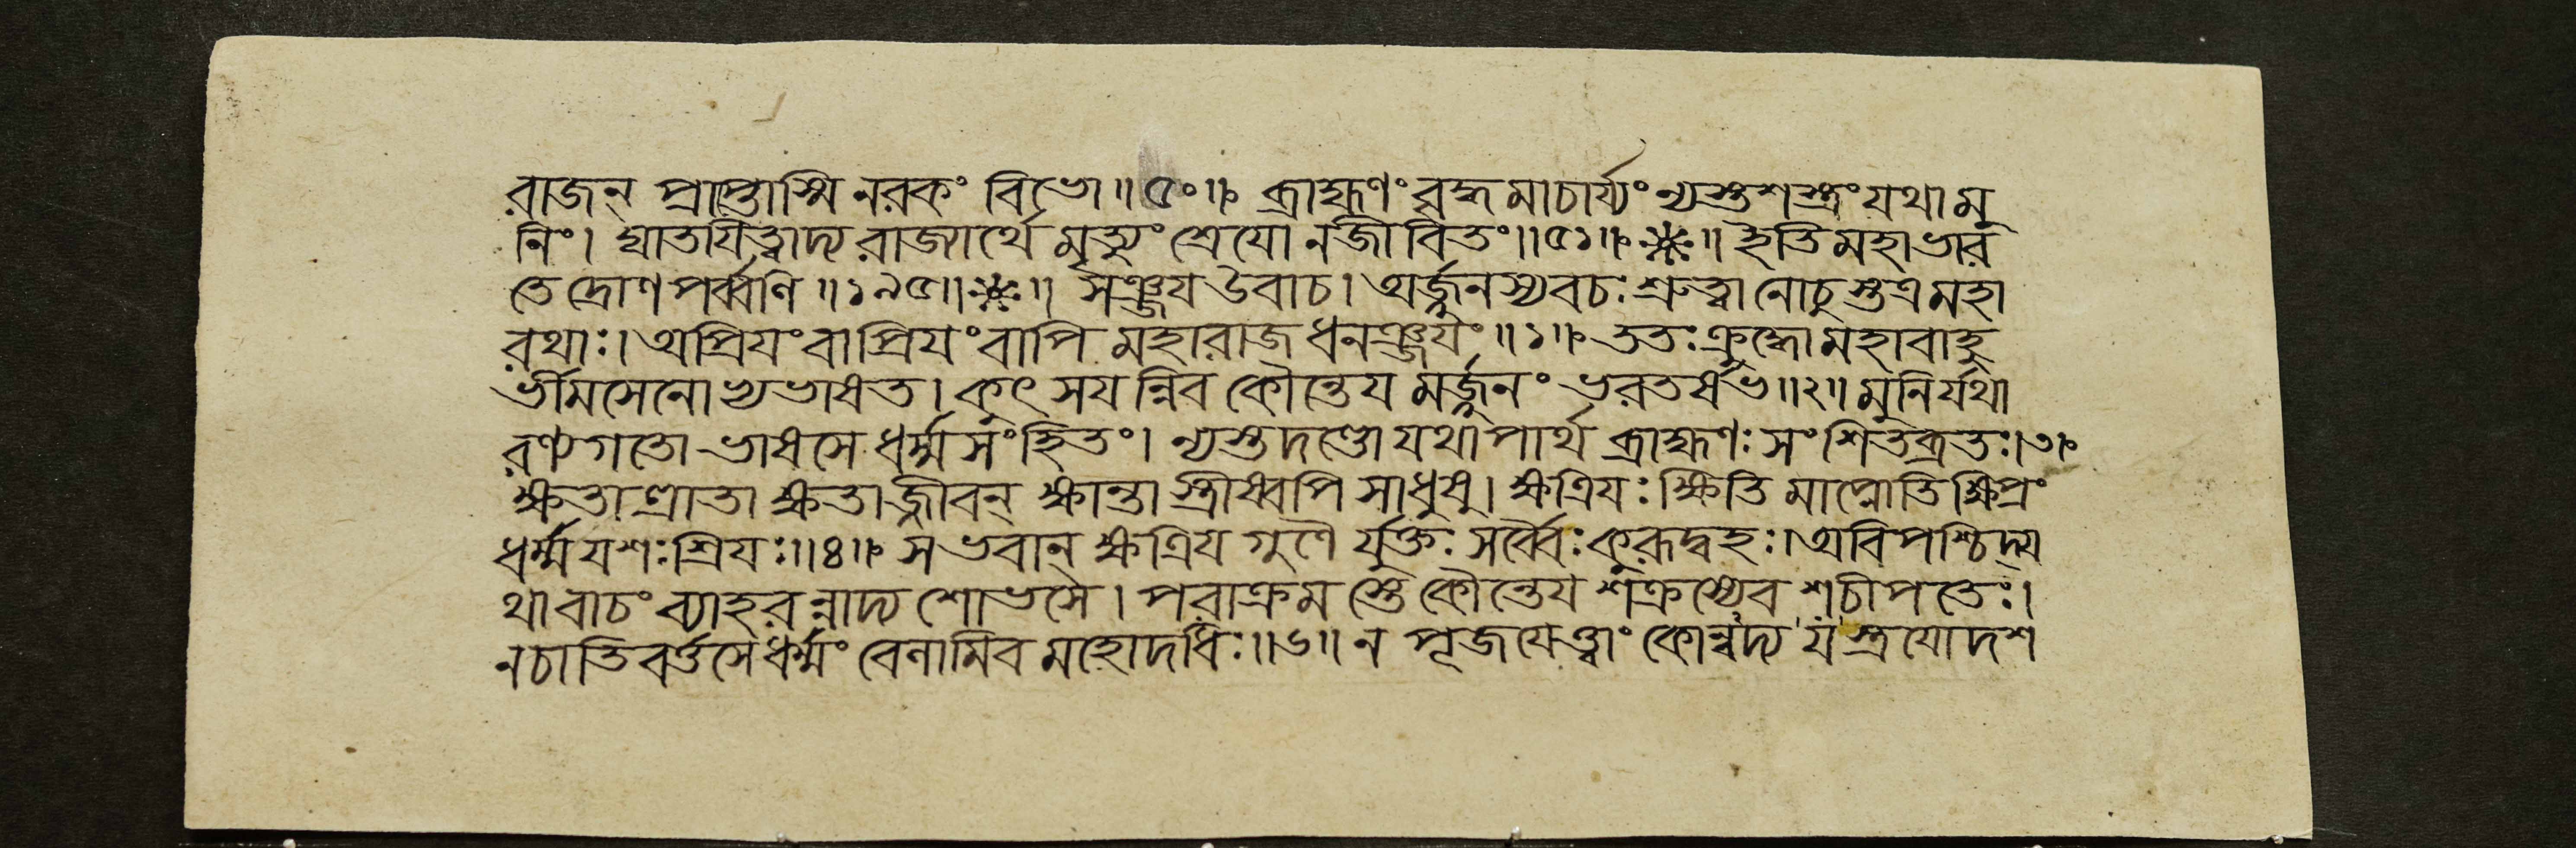 রাজন্ প্রাপ্তাস্মি নরকং বিভো॥৫০॥ ব্রাহ্মণং ব্রহ্মমাচার্য্যং ন্যস্তশস্ত্রং যথা মু
নিং। ঘাতয়িত্বাদ্য রাজ্যার্থে মৃত্যুং শ্রেয়ো ন জীবিতং॥৫১॥ ইতি মহাভার
তে দ্রোণপর্ব্বণি॥১৯৫॥ সঞ্জয় উবাচ। অর্জ্জুনস্য বচঃ শ্রুত্বা নোচুস্তত্র মহা
রথাঃ। অপ্রিয়ং বা প্রিয়ং বাপি মহারাজ ধনঞ্জয়ং॥১॥ ততঃ ক্রুদ্ধো মহাবাহু
র্ভীমসেনোভ্যভাষত। কুৎসয়ন্নিব কৌন্তেয়মর্জ্জুনং ভরতর্ষভ॥২॥ মুনির্যথা
রণ্যগতো ভাষসে ধর্ম্মসংহিতং। ন্যস্তদণ্ডো যথা পার্থ ব্রাহ্মণঃ সংশিতব্রতঃ।৩
ক্ষতাত্রাতা ক্ষতাজ্জীবন্ ক্ষান্তা স্ত্রীষ্বপি সাধুষু। ক্ষত্রিয়ঃ ক্ষিতিমাপ্নোতি ক্ষিপ্রং
ধর্ম্ম যশঃ শ্রিয়ঃ॥৪॥ স ভবান্ ক্ষত্রিয়গুণৈর্যুক্তঃ সর্ব্বৈঃ কুরূদ্বহঃ। অবিপশ্চিদ্য
থা বাচং ব্যাহরন্নাদ্য শোভসে। পরাক্রমস্তে কৌন্তেয় শক্রস্যেব শচীপতেঃ।
ন চাতিবর্ত্তসে ধর্ম্মং বেলামিব মহোদধিঃ॥৬॥ ন পূজয়েত্ত্বাং কোন্বদ্য যস্ত্রয়োদশ